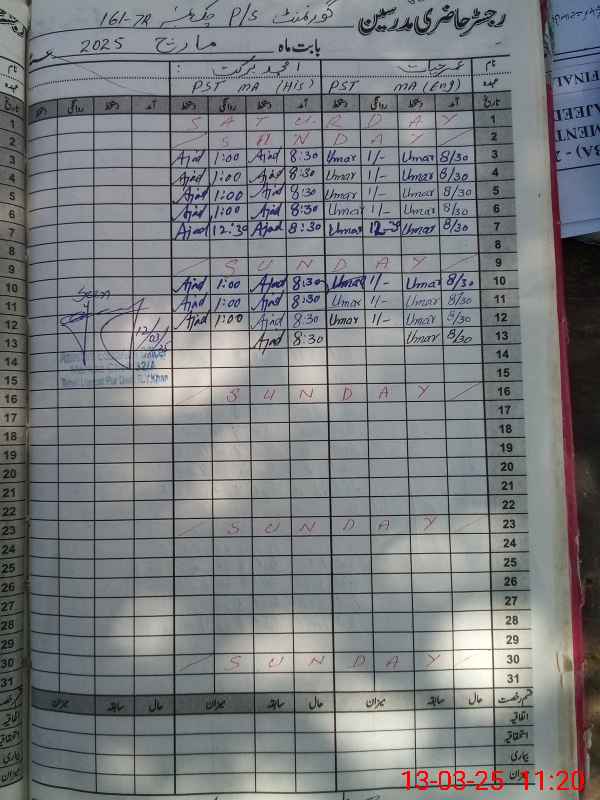 رجسٹر حاضری مدرسین گورنمنٹ P/S چک نمبر 161-7R
بابت ماہ مارچ 2025
نام عمر حیات امجد برکت :
عہدہ PST MA (Eng) PST MA (His)
تاریخ آمد دستخط روانگی دستخط آمد دستخط روانگی دستخط آمد دستخط روانگی دستخط
1 SATURDAY
2 SUNDAY
3 8/30 Umar 1/- Umar 8:30 Ajad 1:00 Ajad
4 8/30 Umar 1/- Umar 8:30 Ajad 1:00 Ajad
5 8/30 Umar 1/- Umar 8:30 Ajad 1:00 Ajad
6 8/30 Umar 1/- Umar 8:30 Ajad 1:00 Ajad
7 8/30 Umar 12:30 Umar 8:30 Ajad 12:30 Ajad
8
9 SUNDAY
10 8/30 Umar 1/- Umar 8:30 Ajad 1:00 Ajad
11 8/30 Umar 1/- Umar 8:30 Ajad 1:00 Ajad
12 8/30 Umar 1/- Umar 8:30 Ajad 1:00 Ajad
13 8/30 Umar 8:30 Ajad
Seen
12/03/25
14
15
16 SUNDAY
17
18
19
20
21
22
23 SUNDAY
24
25
26
27
28
29
30 SUNDAY
31
قسم رخصت حال سابقہ میزان حال سابقہ میزان حال سابقہ میزان
اتفاقیہ
استحقاقیہ
بیماری
میزان
FINAL
AJEED
MENT
BA) - 2
13-03-25 11:20